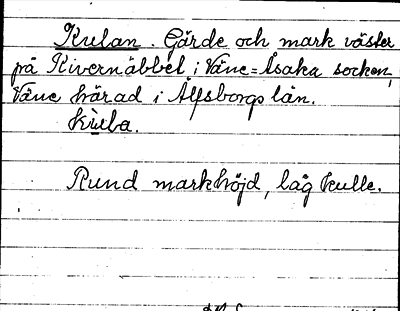 Kulan. Gärde och mark väster
på Kivernäbbet i Väne=Åsaka socken,
Väne härad i Älfsborgs län.
Rund markhöjd, låg kulle.